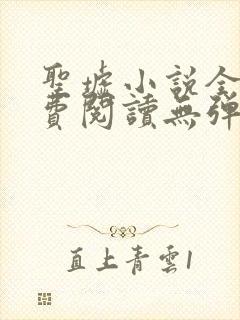 聖墟小說全
費閱讀無彈
直上青雲1